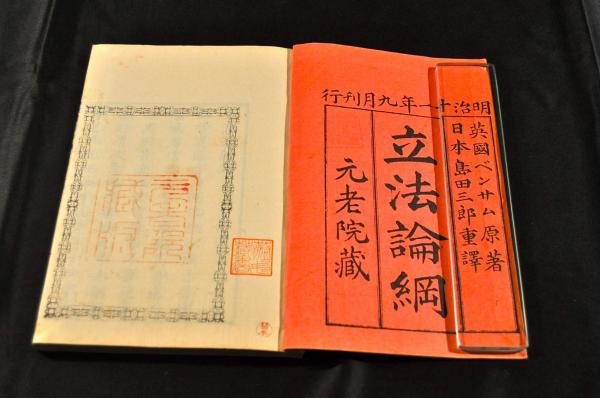 明治十一年九月刊行
英國ベンサム原著
日本島田三郎重譯
立法論綱
元老院藏